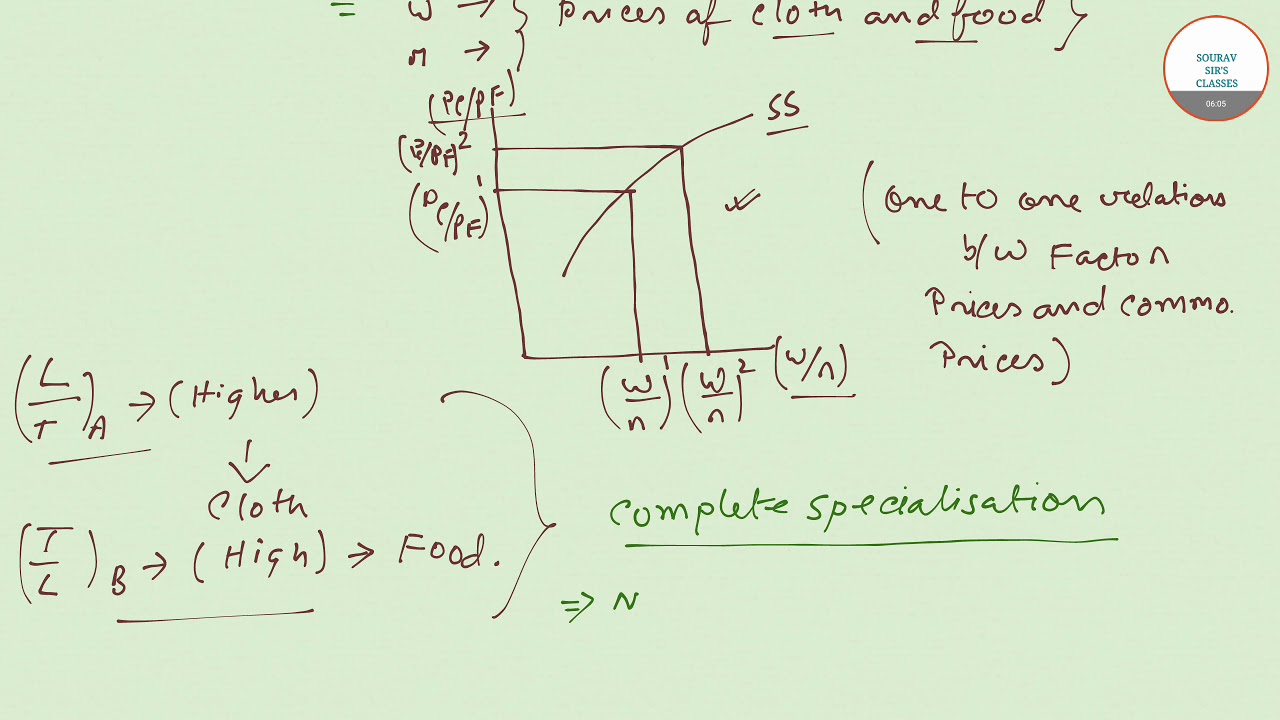 = w → } Prices of cloth and food }
r →
(Pc/PF)
(Pc/PF)²
(Pc/PF)¹
SS
(w/r)¹ (w/r)² (w/r)
(One to one relations
b/w Factor
Prices and commo.
Prices)
(L/T)A → (Higher)
↓
Cloth
(T/L)B → (High) → Food.
Complete specialisation
⇒ N
SOURAV
SIR'S
CLASSES
06:05